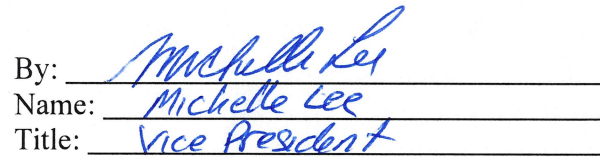 By: Michelle Lee
Name: Michelle Lee
Title: Vice President